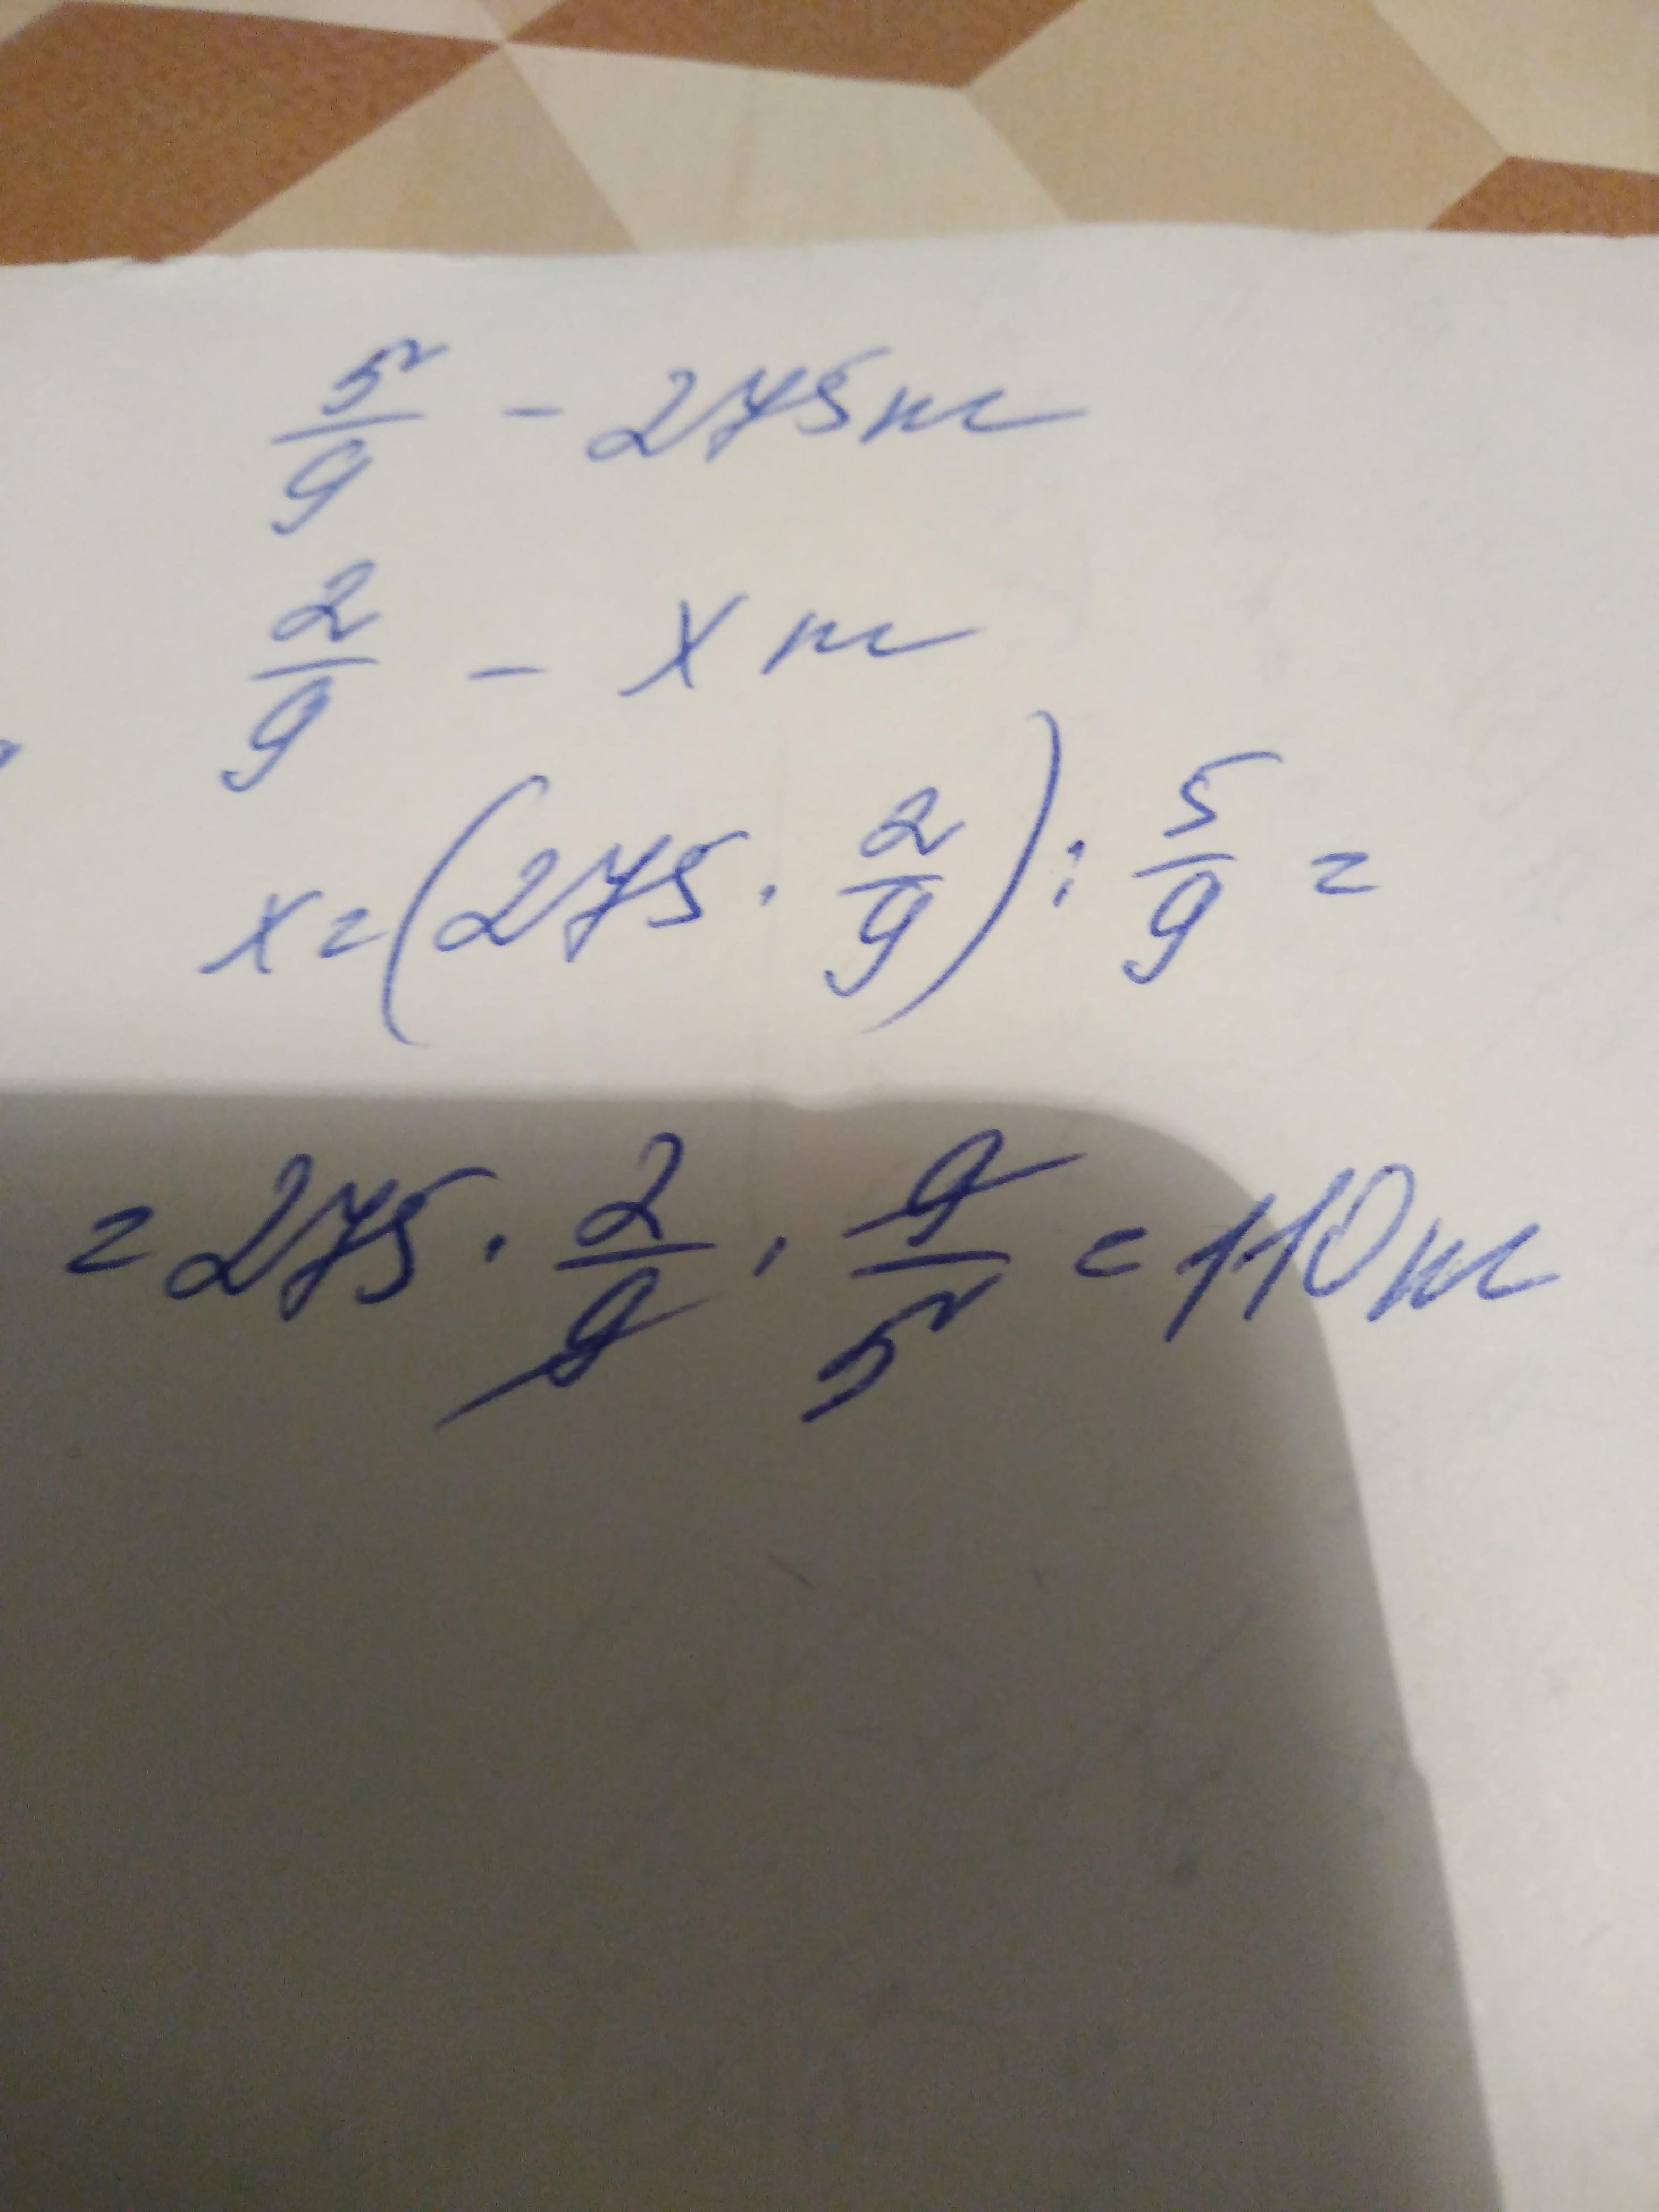 5/9 - 275 m
2/9 - x m
x = (275 · 2/9) : 5/9 =
= 275 · 2/9 · 9/5 = 110 m